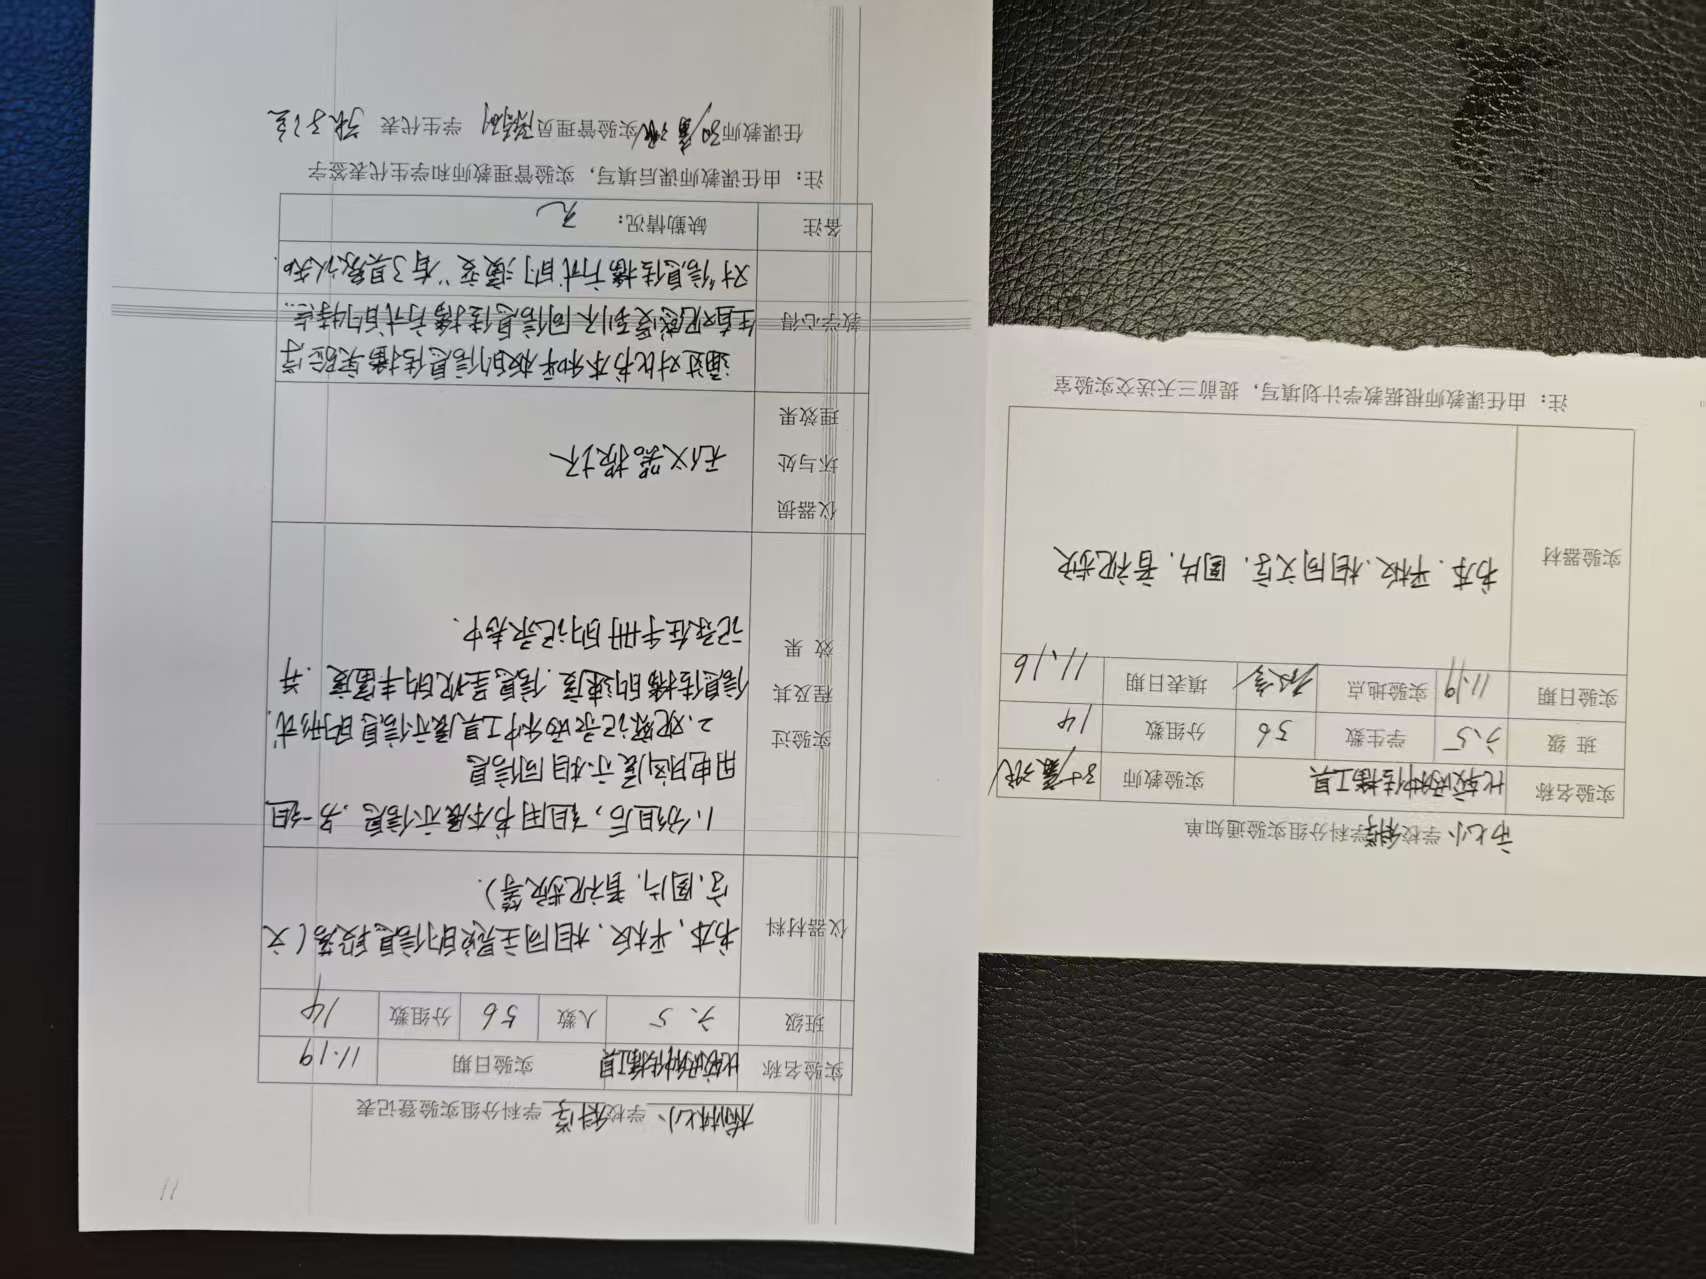 学校科学学科分组实验通知单
实验名称 比较两种传播工具 实验教师
班 级 3.5 学生数 56 分组数 14
实验日期 11.19 实验地点 填表日期 11.16
实验器材 书本.平板.相同文字.图片.音视频
注：由任课教师根据教学计划填写，提前三天送交实验室
学校科学学科分组实验登记表
实验名称 比较两种传播工具 实验日期 11.19
班级 3.5 人数 56 分组数 14
仪器材料 书本、平板、相同主题的信息段落(文
字.图片.音视频等).
实验过程及其效果 1.分组后,一组用书本展示信息.另一组
用电脑展示相同信息
2.观察记录两种工具展示信息的形式.
信息传播的速度.信息呈现的丰富度.并
记录在手册的记录表中.
仪器损坏与处理效果 无仪器损坏
教学心得 通过对比书本和平板的信息传播实验学
生直观感受到不同信息传播方式的特点..
对“信息传播方式的演变”有了具象认知.
备注 缺勤情况： 无
注：由任课教师课后填写，实验管理教师和学生代表签字
任课教师 实验管理员 学生代表
11